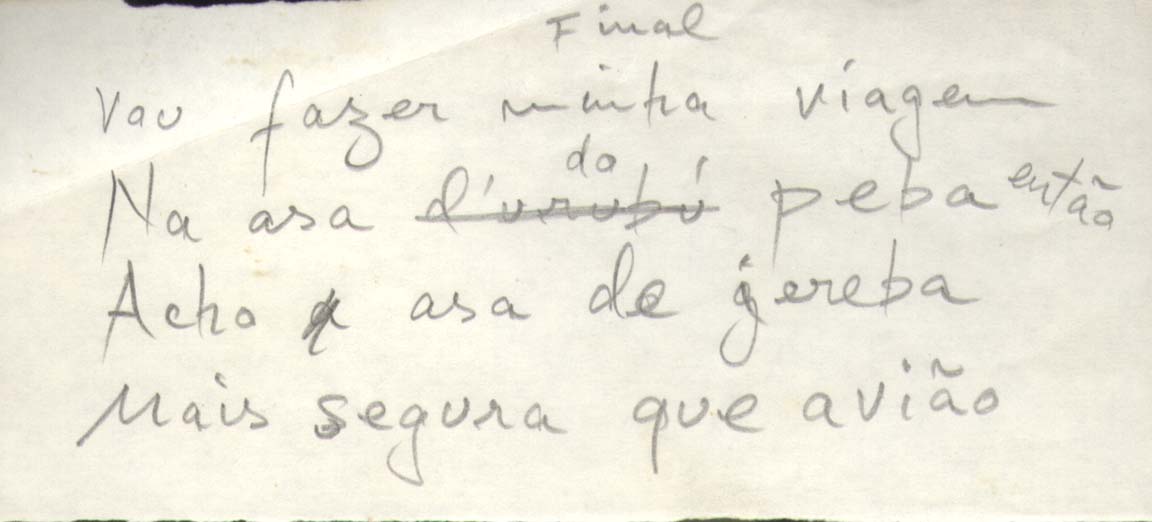 Final
Vou fazer minha viagem
Na asa d'urubú do peba então
Acho q asa de jereba
Mais segura que avião